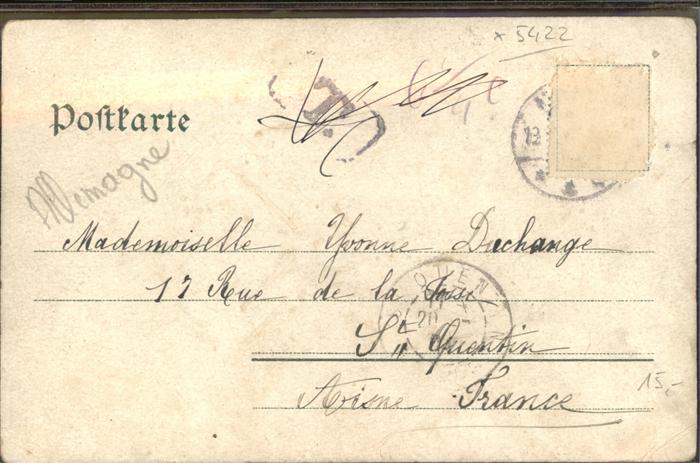 x 5422
T.
Postkarte
13
Allemagne
Mademoiselle Yvonne Duchange
17 Rue de la Fosse
QUEN
20
St Quentin
15,-
Aisne France